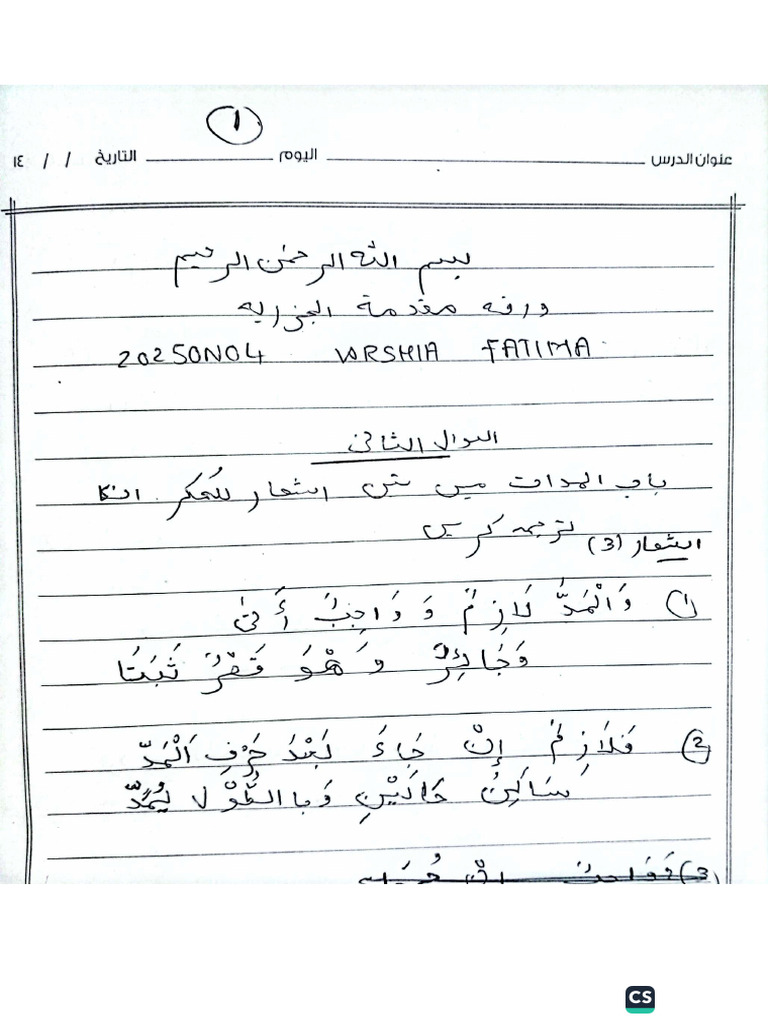 ١
عنوان الدرس اليوم التاريخ / / ١٤
بسم الله الرحمٰن الرحيم
ورقه مقدمة الجزريه
20250N04 WRSHIA FATIMA
السوال الثانی
باب المدات میں تین اشعار لکھکر انکا
ترجمہ کریں
اشعار (3)
١) وَالْمَدُّ لَازِمٌ وَ وَاجِبٌ أَتَىٰ
وَجَائِزٌ وَهْوَ وَقَصْرٌ ثَبَتَا
2) فَلَازِمٌ إِنْ جَاءَ بَعْدَ حَرْفِ الْمَدِّ
سَاكِنُ حَالَيْنِ وَبِالطُّوْلِ يُمَدّ
CS